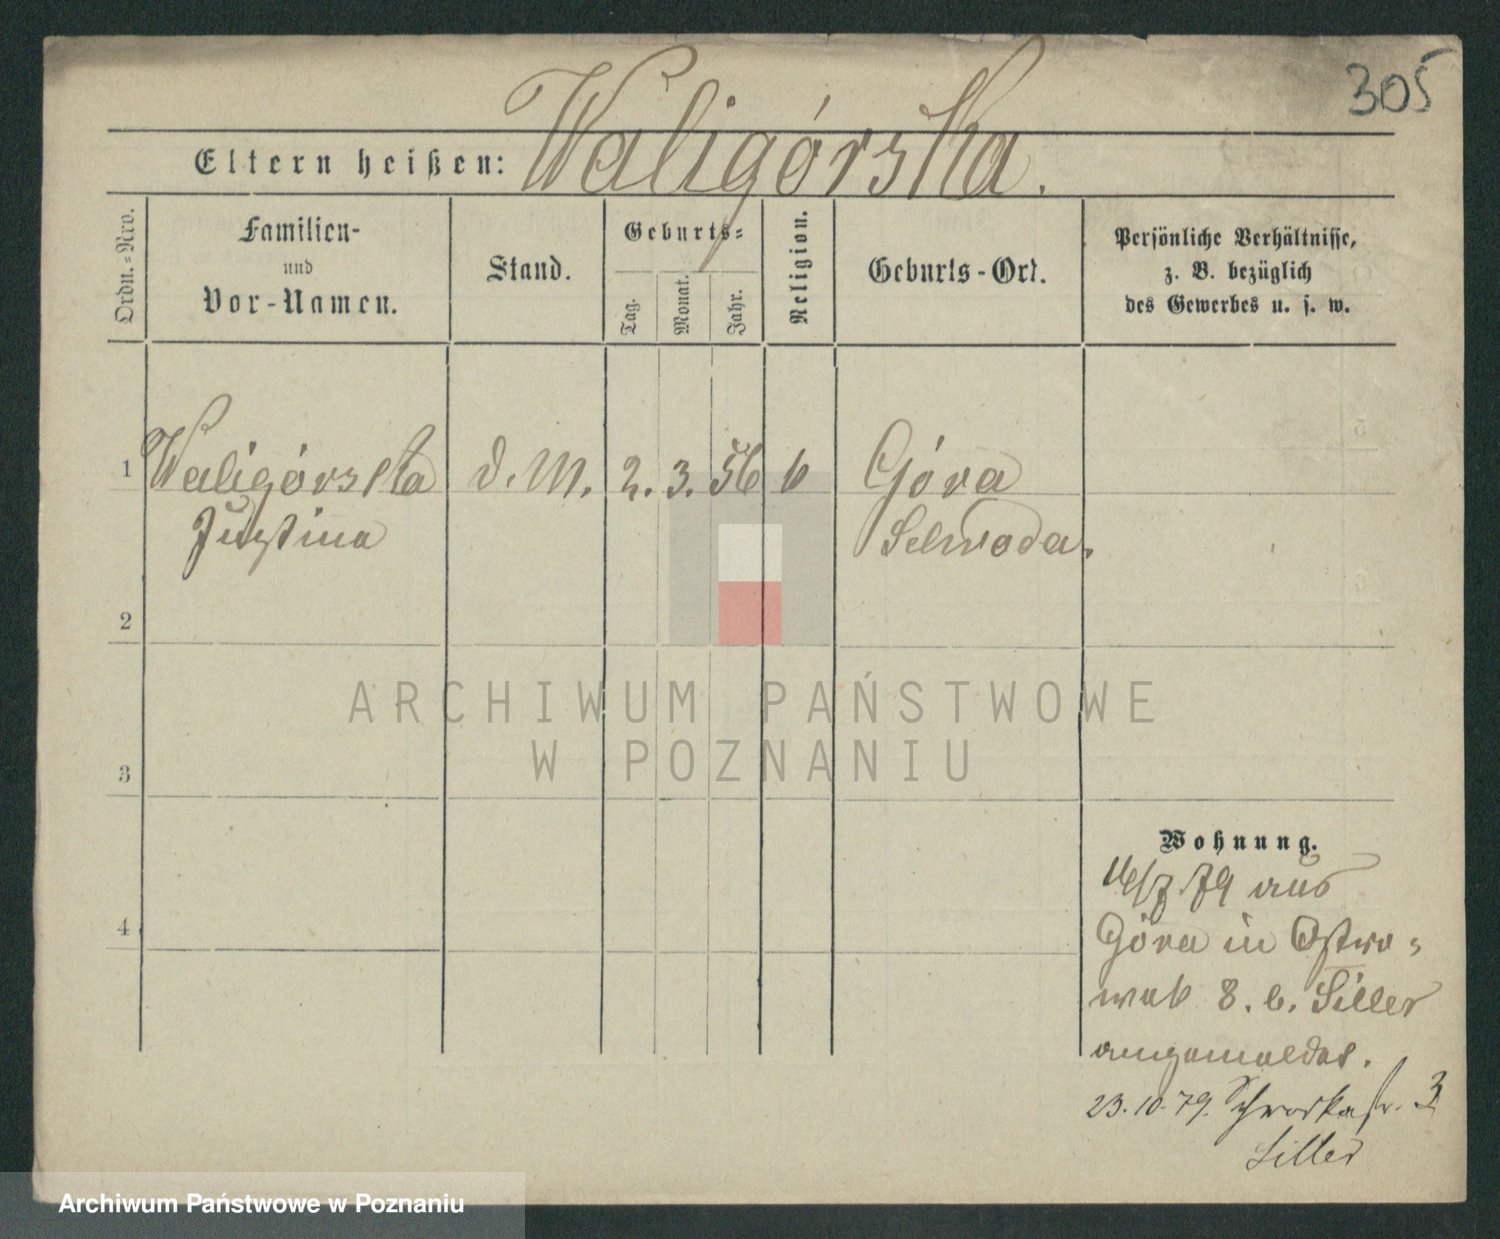 305
Eltern heißen: Waligórska.
Ordn.-Nro.
Familien- und Vor-Namen.
Stand.
Geburts-
Tag.
Monat.
Jahr.
Religion.
Geburts-Ort.
Persönliche Verhältnisse,
z. B. bezüglich
des Gewerbes u. s. w.
1 Waligórska d. M. 2. 3. 56 k Góra
Justina Schroda.
2
3
4
ARCHIWUM PAŃSTWOWE
W POZNANIU
Wohnung.
79 aus
Góra in Ostro-
wek 8. b. Siller
angemeldet.
23.10.79. Schrodkastr. 3
Siller
Archiwum Państwowe w Poznaniu